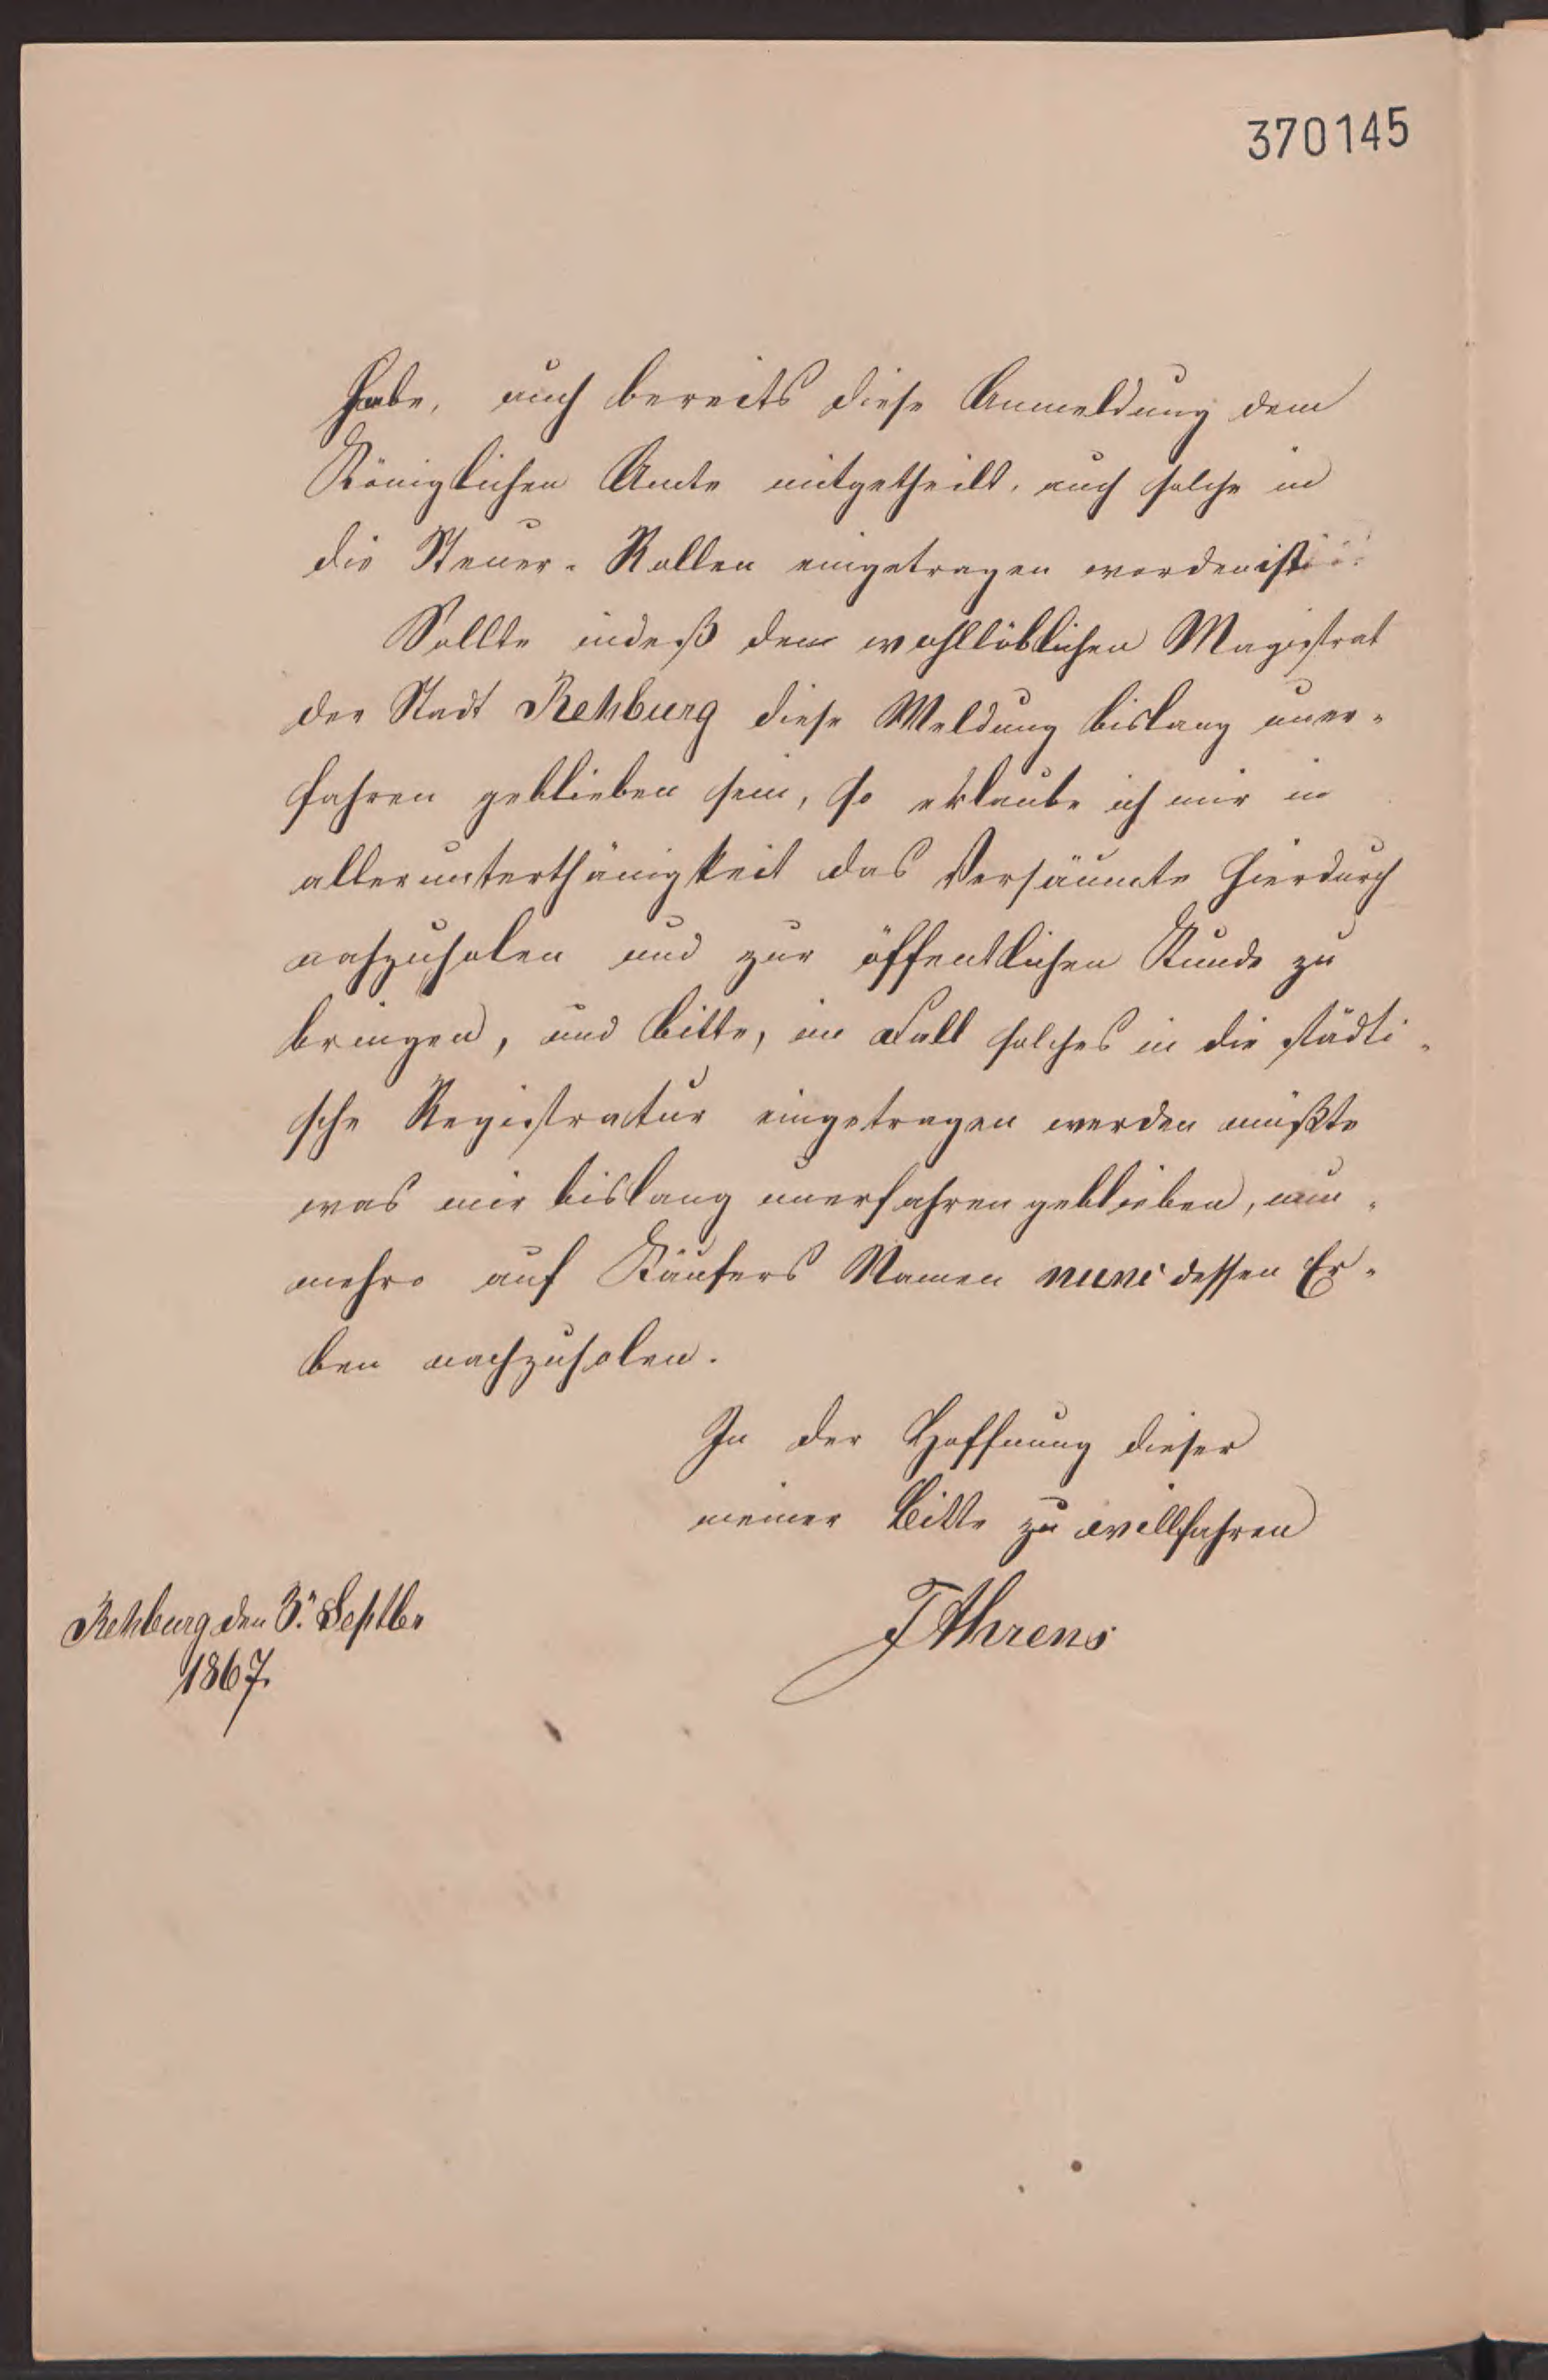 370145
habe, auch bereits diese Anmeldung dem
Königlichen Amte mitgetheilt, auch solche in
die Steuer-Rollen eingetragen worden ist
Sollte indeß dem wohllöblichen Magistrat
der Stadt Rehburg diese Meldung bislang uner-
fahren geblieben sein, so erlaube ich mir in
allerunterthänigkeit das Versäumte hierdurch
nachzuholen und zur öffentlichen Kunde zu
bringen, und bitte, im Fall solches in die städti-
sche Registratur eingetragen werden müßte
was mir bislang unerfahren geblieben, nun-
mehro auf Käufers Namen nunc dessen Er-
ben nachzuholen.
In der Hoffnung dieser
meiner Bitte zu willfahren
Rehburg den 3. Septbr
1867.
F Ahrens